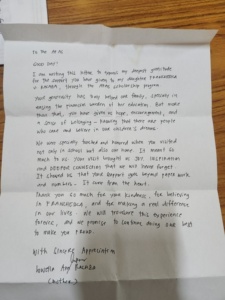 Good day!
I am writing this letter to express my deepest gratitude
for the support you have given to my daughter
through the scholarship program
Your generosity has truly helped our family, especially in
easing the financial burden of her education. But more
than that, you have given us hope, encouragement, and
a sense of belonging — knowing that there are people
who care and believe in our children's dreams.
We were specially touched and honored when you visited
not only in school but also our home. It meant so
much to us. Your visit brought us joy, inspiration
and deeper connection that we will never forget.
It showed us that your support goes beyond paper work
and numbers. It came from the heart.
Thank you so much for your kindness, for believing
in and for making a real difference
in our lives. We will treasure this experience
forever, and we promise to continue doing our best
to make you proud.
With Sincere Appreciation
(mother)